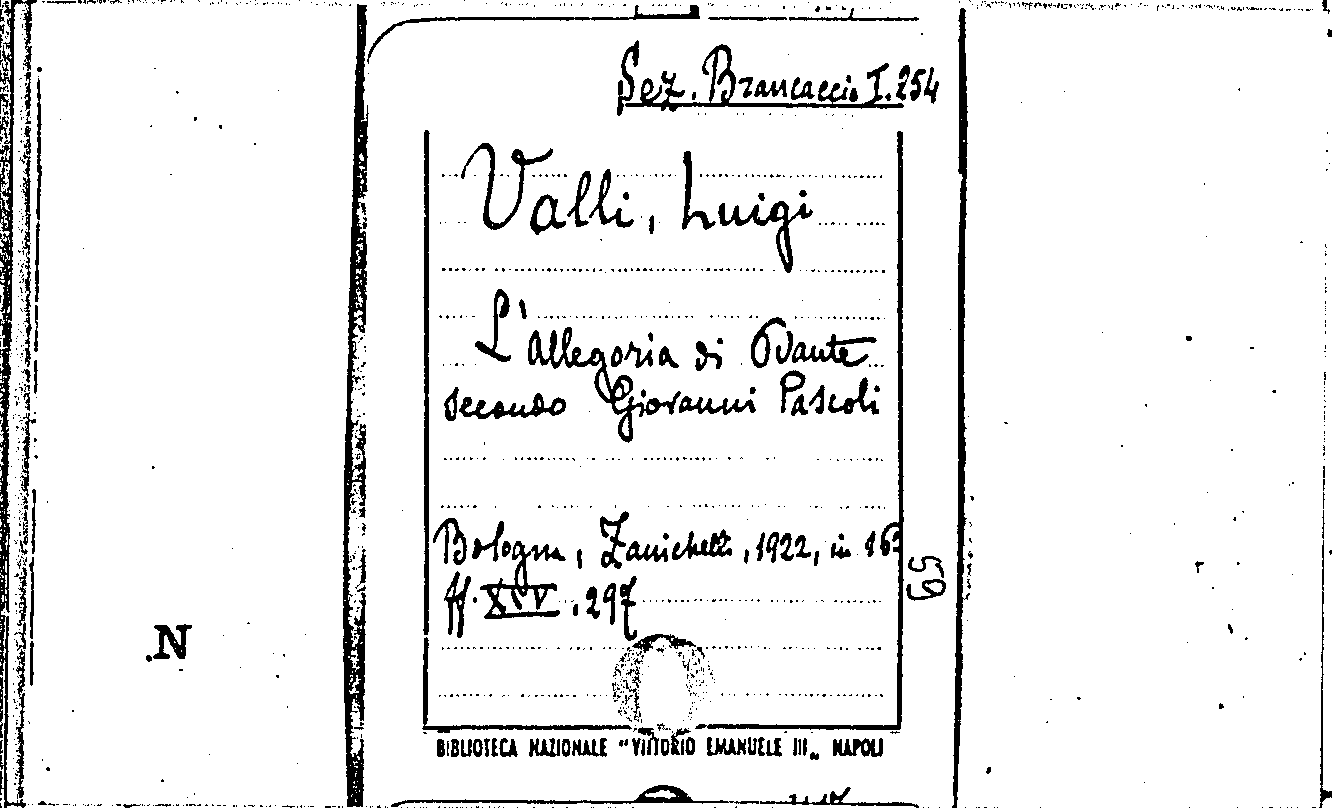 Sez. Brancaccio I.254
Valli, Luigi
L'allegoria di Dante
secondo Giovanni Pascoli
Bologna, Zanichelli, 1922, in 16º
ff. XIV. 297
59
.N
BIBLIOTECA NAZIONALE "VITTORIO EMANUELE III„ NAPOLI